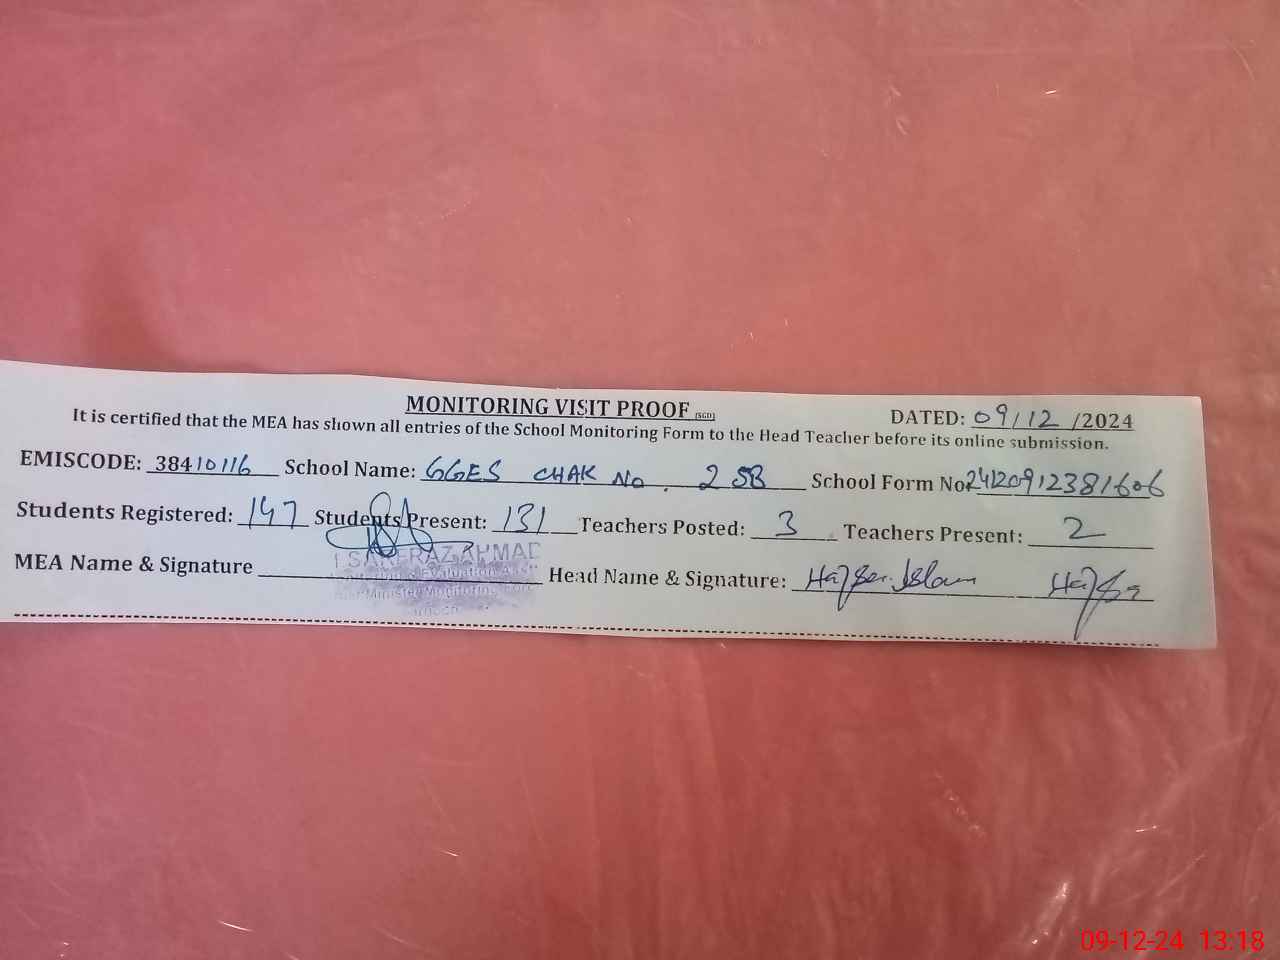 MONITORING VISIT PROOF [SGD]
DATED: 09/12/2024
It is certified that the MEA has shown all entries of the School Monitoring Form to the Head Teacher before its online submission.
EMISCODE: 38410116 School Name: GGES CHAK No. 2 SB School Form No: 24120912381606
Students Registered: 147 Students Present: 131 Teachers Posted: 3 Teachers Present: 2
MEA Name & Signature Head Name & Signature: Islam
AHMAD
& Evaluation
Monitoring
09-12-24 13:18